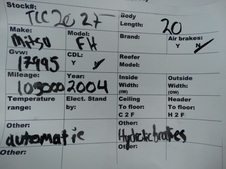 Stock#: TCC 20 27
Body Length: 20
Make: Mitso
Model: FH
Brand:
Air brakes: Y N
Gvw: 17995
CDL: Y
Reefer Model:
Mileage: 105000
2004
Inside Width: (IW)
Outside Width: (OW)
Temperature range:
Elect. Stand by:
Ceiling To floor: C 2 F
Header To floor: H 2 F
Other: automatic
Other:
Other:
Other: